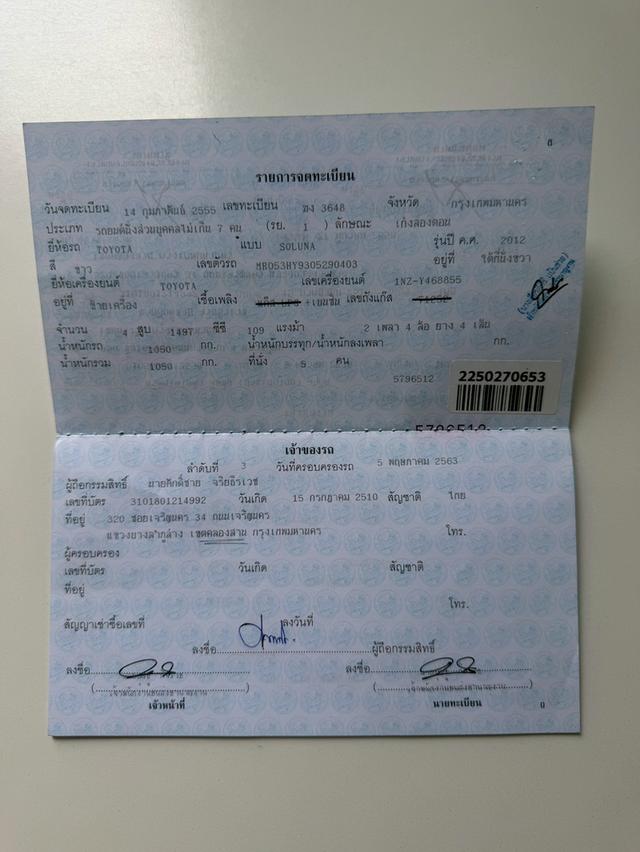 รายการจดทะเบียน
วันจดทะเบียน 14 กุมภาพันธ์ 2555 เลขทะเบียน 3648 จังหวัด กรุงเทพมหานคร
ประเภท รถยนต์นั่งส่วนบุคคลไม่เกิน 7 คน (รย. 1 ) ลักษณะ เก๋งสองตอน
ยี่ห้อรถ TOYOTA แบบ SOLUNA รุ่นปี ค.ศ. 2012
สี ขาว เลขตัวรถ MR053HY9305290403 อยู่ที่ ใต้ที่นั่งขวา
ยี่ห้อเครื่องยนต์ TOYOTA เลขเครื่องยนต์ 1NZ-Y468855
อยู่ที่ ซ้ายเครื่อง เชื้อเพลิง เลขถังแก๊ส
จำนวน 4 สูบ 1497 ซีซี 109 แรงม้า 2 เพลา 4 ล้อ ยาง 4 เส้น
น้ำหนักรถ 1050 กก. น้ำหนักบรรทุก/น้ำหนักลงเพลา กก.
น้ำหนักรวม 1050 กก. ที่นั่ง 5 คน
5796512
2250270653
เจ้าของรถ
ลำดับที่ 3 วันที่ครอบครองรถ 5 พฤษภาคม 2563
ผู้ถือกรรมสิทธิ์ นายศักดิ์ชาย จริยธีรเวช
เลขที่บัตร 3101801214992 วันเกิด 15 กรกฎาคม 2510 สัญชาติ ไทย
ที่อยู่ 320 ซอยเจริญนคร 34 ถนนเจริญนคร
แขวงบางลำภูล่าง เขตคลองสาน กรุงเทพมหานคร โทร.
ผู้ครอบครอง
เลขที่บัตร วันเกิด สัญชาติ
ที่อยู่
โทร.
สัญญาเช่าซื้อเลขที่ ลงวันที่
ลงชื่อ ผู้ถือกรรมสิทธิ์
ลงชื่อ ลงชื่อ
เจ้าหน้าที่ นายทะเบียน